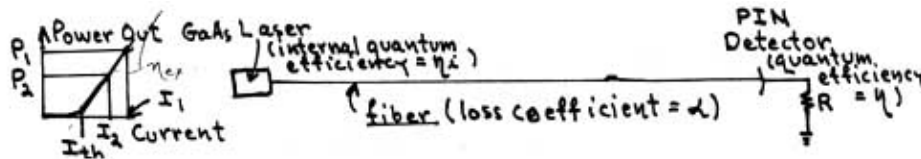 Power Out
P₁
P₂
ηex
I₁
I₂
Ith
Current
GaAs Laser
(internal quantum
efficiency = ηi)
fiber (loss coefficient = α)
PIN
Detector
(quantum
efficiency
= η)
R